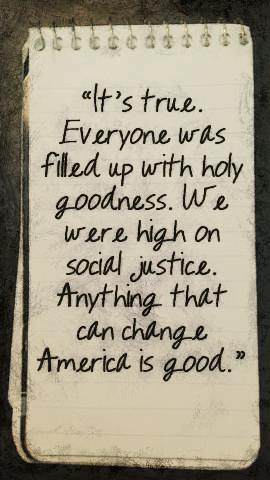 “It’s true.
Everyone was
filled up with holy
goodness. We
were high on
social justice.
Anything that
can change
America is good.”